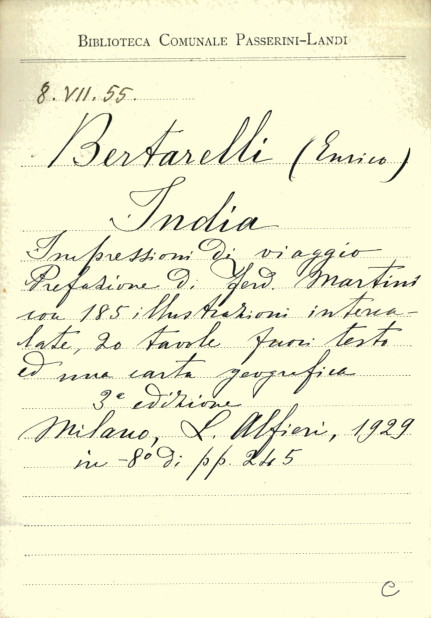 BIBLIOTECA COMUNALE PASSERINI-LANDI
8. VII. 55.
Bertarelli (Enrico)
India
Impressioni di viaggio
Prefazione di Ferd. Martini
con 185 illustrazioni interca-
late, 20 tavole fuori testo
ed una carta geografica
3ª edizione
Milano, L. Alfieri, 1929
in-8° di pp. 245
C